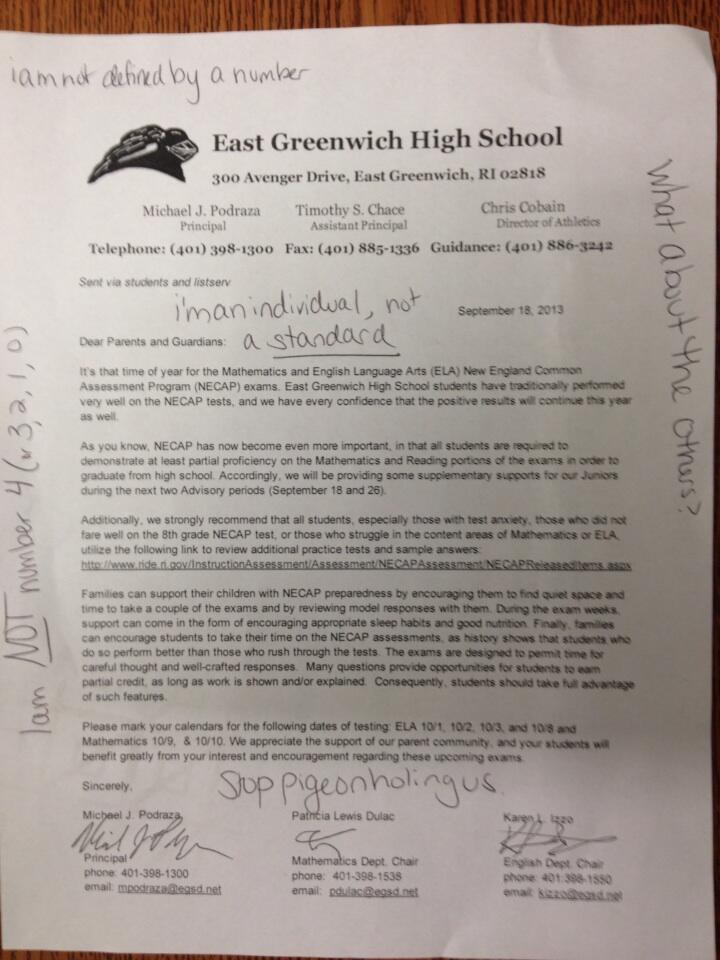 i am not defined by a number
East Greenwich High School
300 Avenger Drive, East Greenwich, RI 02818
Michael J. Podraza Timothy S. Chace Chris Cobain
Principal Assistant Principal Director of Athletics
Telephone: (401) 398-1300 Fax: (401) 885-1336 Guidance: (401) 886-3242
Sent via students and listserv
i'm an individual, not
September 18, 2013
Dear Parents and Guardians: a standard
It's that time of year for the Mathematics and English Language Arts (ELA) New England Common
Assessment Program (NECAP) exams. East Greenwich High School students have traditionally performed
very well on the NECAP tests, and we have every confidence that the positive results will continue this year
as well.
As you know, NECAP has now become even more important, in that all students are required to
demonstrate at least partial proficiency on the Mathematics and Reading portions of the exams in order to
graduate from high school. Accordingly, we will be providing some supplementary supports for our Juniors
during the next two Advisory periods (September 18 and 26).
Additionally, we strongly recommend that all students, especially those with test anxiety, those who did not
fare well on the 8th grade NECAP test, or those who struggle in the content areas of Mathematics or ELA,
utilize the following link to review additional practice tests and sample answers:
http://www.ride.ri.gov/InstructionAssessment/Assessment/NECAPAssessment/NECAPReleasedItems.aspx
Families can support their children with NECAP preparedness by encouraging them to find quiet space and
time to take a couple of the exams and by reviewing model responses with them. During the exam weeks,
support can come in the form of encouraging appropriate sleep habits and good nutrition. Finally, families
can encourage students to take their time on the NECAP assessments, as history shows that students who
do so perform better than those who rush through the tests. The exams are designed to permit time for
careful thought and well-crafted responses. Many questions provide opportunities for students to earn
partial credit, as long as work is shown and/or explained. Consequently, students should take full advantage
of such features.
Please mark your calendars for the following dates of testing: ELA 10/1, 10/2, 10/3, and 10/8 and
Mathematics 10/9, & 10/10. We appreciate the support of our parent community, and your students will
benefit greatly from your interest and encouragement regarding these upcoming exams.
Sincerely,
Stop pigeonholing us.
Michael J. Podraza Patricia Lewis Dulac Karen L. Izzo
Principal Mathematics Dept. Chair English Dept. Chair
phone: 401-398-1300 phone: 401-398-1538 phone: 401-398-1580
email: mpodraza@egsd.net email: pdulac@egsd.net email: kizzo@egsd.net
I am NOT number 4 (or 3, 2, 1, 0)
What about the others?